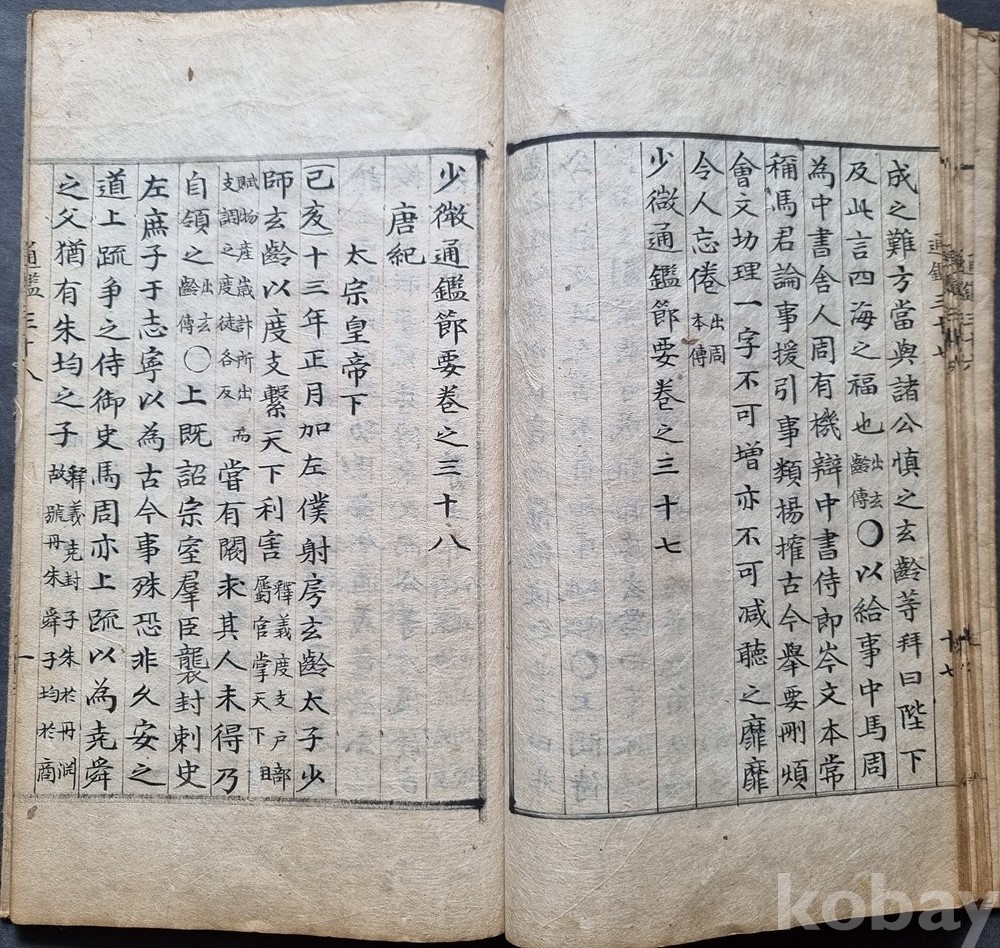 成之難方當與諸公慎之玄齡等拜曰陛下
及此言四海之福也出玄齡傳〇以給事中馬周
為中書舍人周有機辯中書侍郎岑文本常
稱馬君論事援引事類揚搉古今舉要刪煩
會文切理一字不可增亦不可減聽之靡靡
令人忘倦出周本傳
少微通鑑節要卷之三十七
少微通鑑節要卷之三十八
唐紀
太宗皇帝下
己亥十三年正月加左僕射房玄齡太子少
師玄齡以度支繫天下利害釋義度支戶部屬官掌天下租
賦物產歲計所出而支調之度徒各反嘗有闕求其人未得乃
自領之出玄齡傳〇上既詔宗室羣臣襲封刺史
左庶子于志寧以為古今事殊恐非久安之
道上疏争之侍御史馬周亦上疏以為堯舜
之父猶有朱均之子釋義堯封子朱於丹淵故號丹朱舜子均於商
通鑑三十八
一
通鑑三十七
十七
kobay